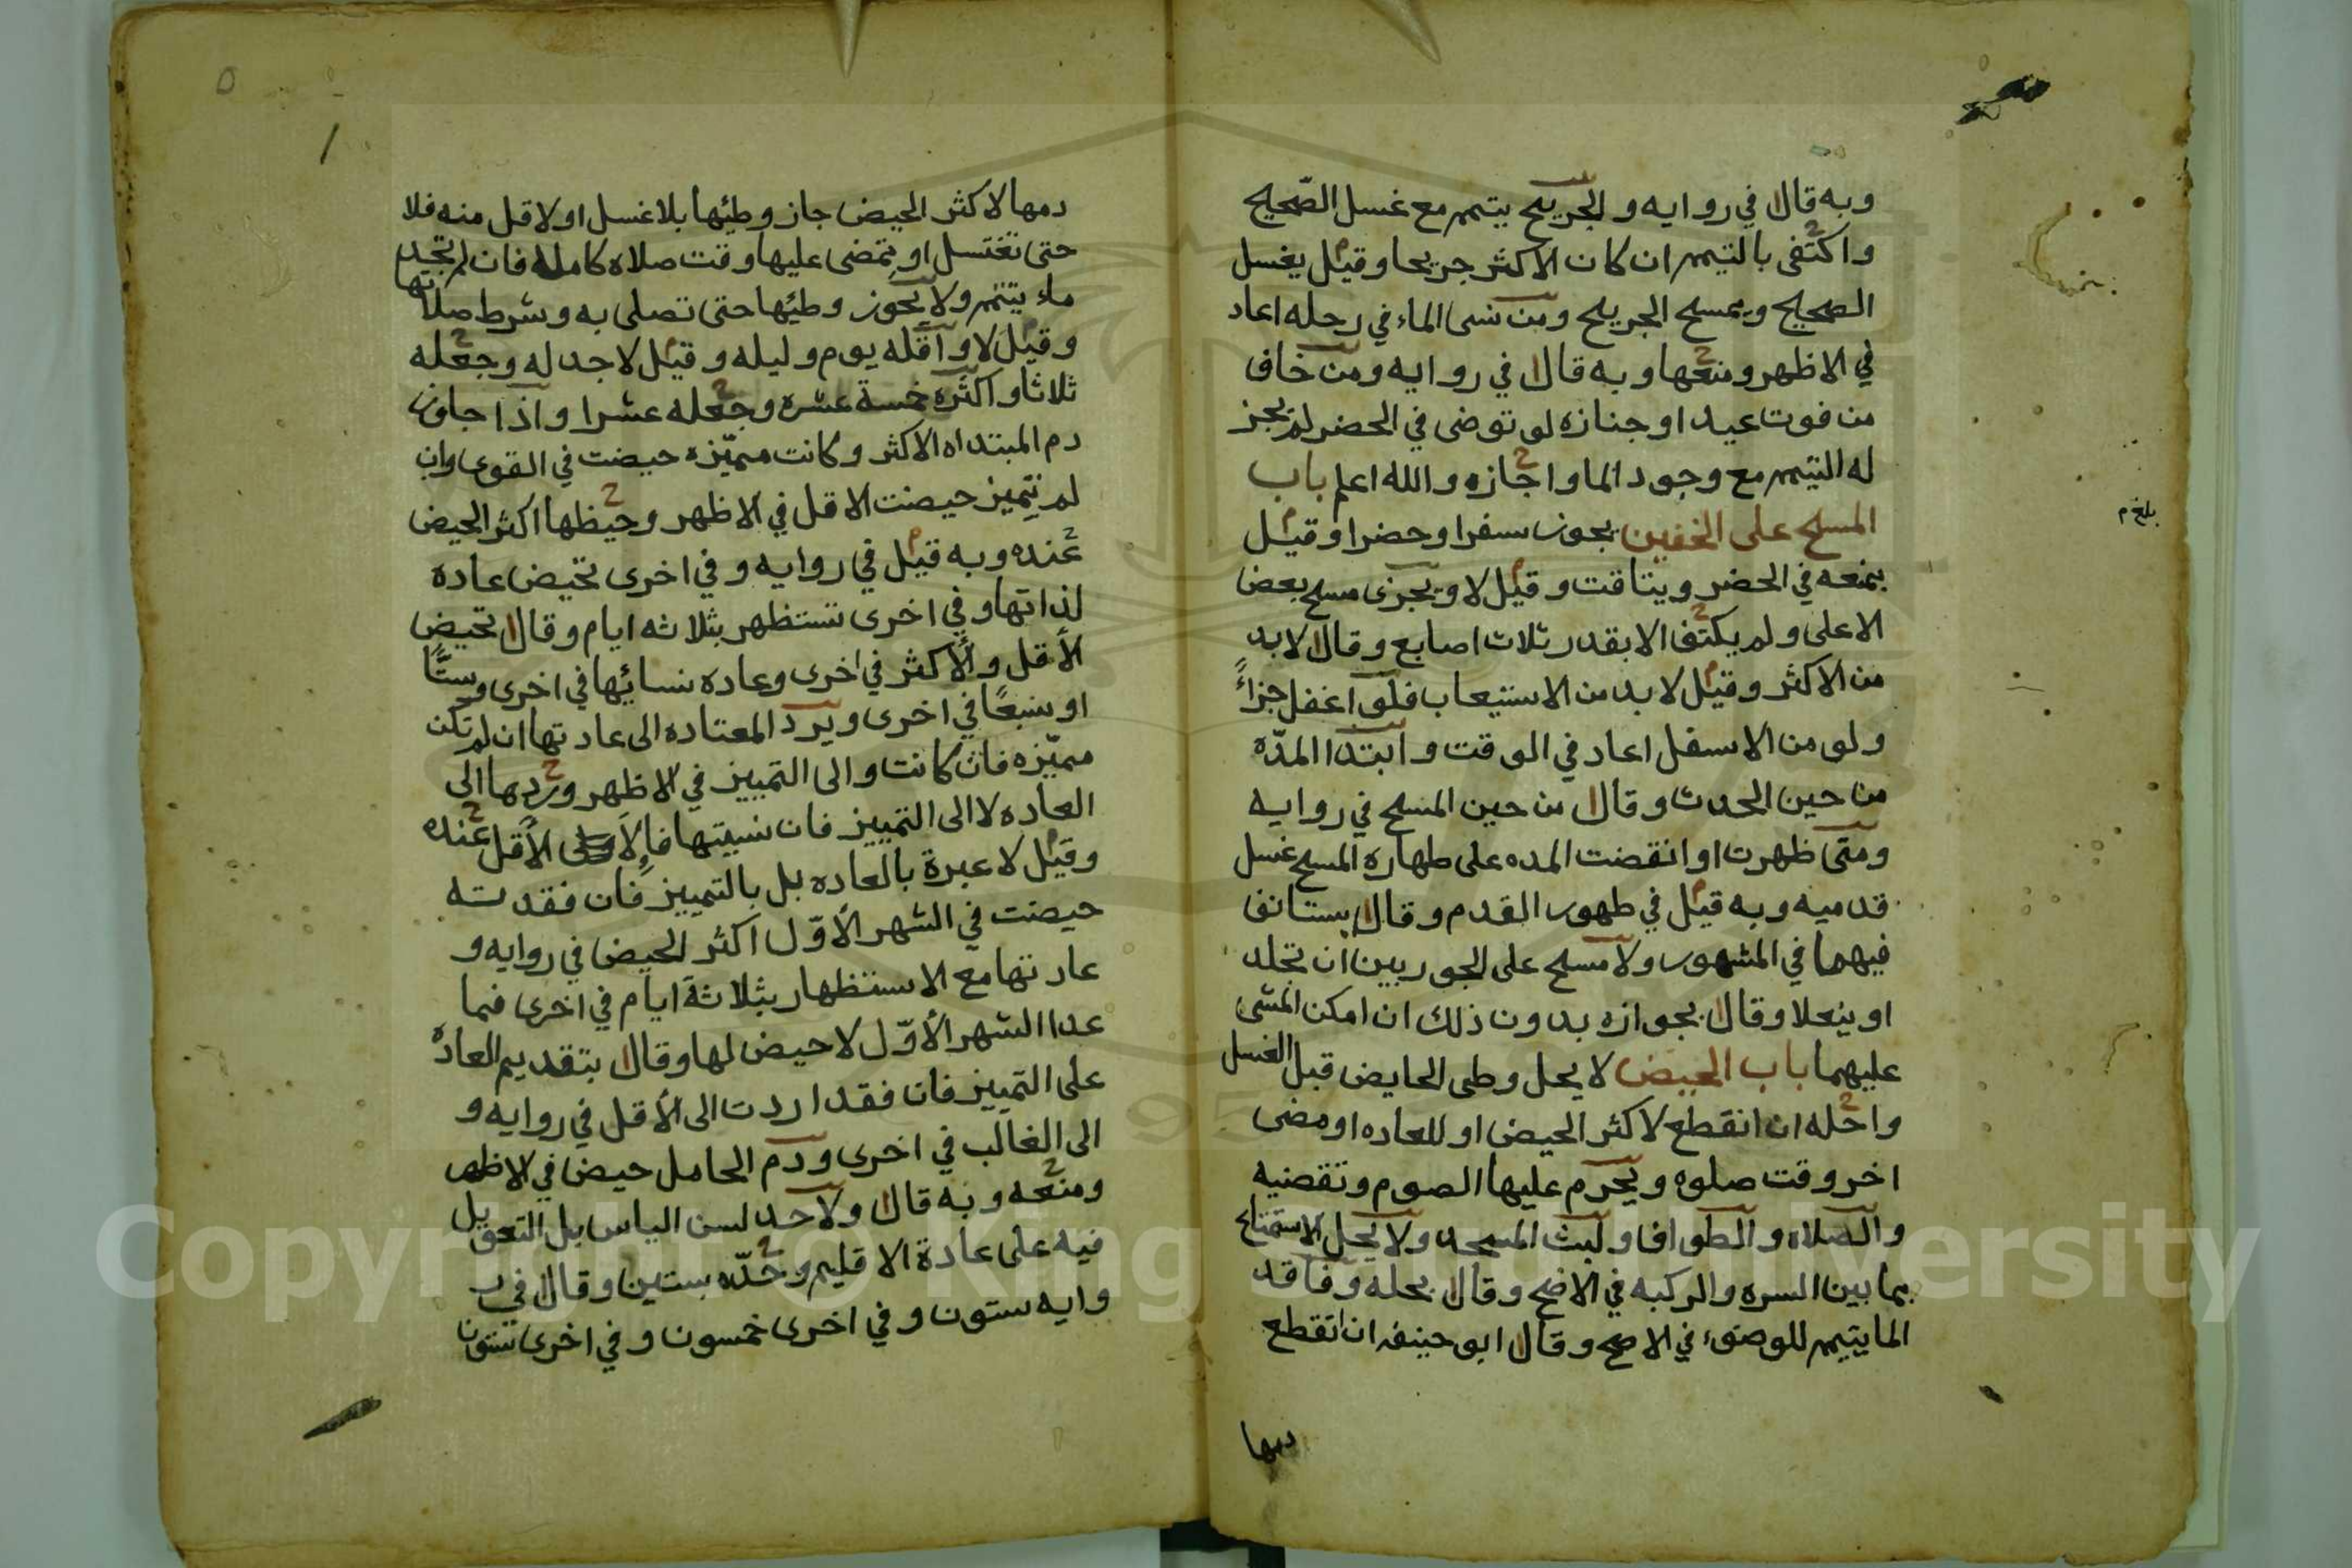 وبه قال في روايه والجريح يتيمم مع غسل الصّحيح
واكتفى بالتيمم ان كان الاكثر جريحا وقيل يغسل
الصحيح ويمسح الجريح ومن نسى الماء في رحله اعاد
في الاظهر ومنعها وبه قال في روايه ومن خاف
من فوت عيد او جنازه لو توضى في الحضر لم يجز
له التيمم مع وجود الما واجازه والله اعلم باب
المسح على الخفين يجوز سفرا وحضرا وقيل
بمنعه في الحضر ويتاقت وقيل لا ويجزى مسح بعض
الاعلى ولم يكتف الا بقدر ثلاث اصابع وقال لا بد
من الاكثر وقيل لا بد من الاستيعاب فلو اغفل جزاءً
ولو من الاسفل اعاد في الوقت وابتدا المدّه
من حين الحدث وقال من حين المسح في روايه
ومتى ظهرت او انقضت المده على طهارة المسح غسل
قدميه وبه قيل في طهور القدم وقال يستانف
فيهما في المشهور ولا مسح على الجوربين ان تجلد
او ينعلا وقال بجوازه بدون ذلك ان امكن المشى
عليهما باب الحيض لا يحل وطى الحايض قبل الغسل
واحله ان انقطع لاكثر الحيض او للعاده او مضى
اخر وقت صلوه ويحرم عليها الصوم وتقضيه
والصلاه والطواف ولبث المسجد ولا يحل الاستمتاع
بما بين السره والركبه في الاصح وقال بحله وفاقد
الما يتيمم للوضوء في الاصح وقال ابو حنيفه ان انقطع
دمها
بلغ م
دمها لاكثر الحيض جاز وطئها بلا غسل او لاقل منه فلا
حتى تغتسل او يمضى عليها وقت صلاه كامله فان لم تجد
ماء يتيمم ولا يجوز وطئها حتى تصلى به وشرط صلاتها
وقيل لا واقله يوم وليله وقيل لا حد له وجعله
ثلاثا واكثره خمسة عشره وجعله عشرا واذا جاوز
دم المبتداه الاكثر وكانت مميّزه حيضت في القوى وان
لم تميز حيضت الاقل في الاظهر وحيظها اكثر الحيض
عنده وبه قيل في روايه وفي اخرى تحيض عاده
لذاتها وفي اخرى تستظهر بثلاثه ايام وقال تحيض
الأقل والأكثر في اخرى وعاده نسائها في اخرى وستًّا
او سبعًا في اخرى ويرد المعتاده الى عادتها ان لم تكن
مميّزه فان كانت والى التمييز في الاظهر وردها الى
العاده لا الى التمييز فان نسيتها فالاولى الأقل عنده
وقيل لا عبرة بالعاده بل بالتمييز فان فقدته
حيضت في الشهر الأوّل اكثر الحيض في روايه و
عادتها مع الاستظهار بثلاثة ايام في اخرى فيما
عدا الشهر الأوّل لا حيض لها وقال بتقديم العاده
على التمييز فان فقدا ردت الى الأقل في روايه و
الى الغالب في اخرى ودم الحامل حيض في الاظهر
ومنعه وبه قال ولا حد لسن الياس بل التعويل
فيه على عادة الاقليم وحدّه بستين وقال في ر
وايه ستون وفي اخرى خمسون وفي اخرى ستون
Copyright © King Saud University